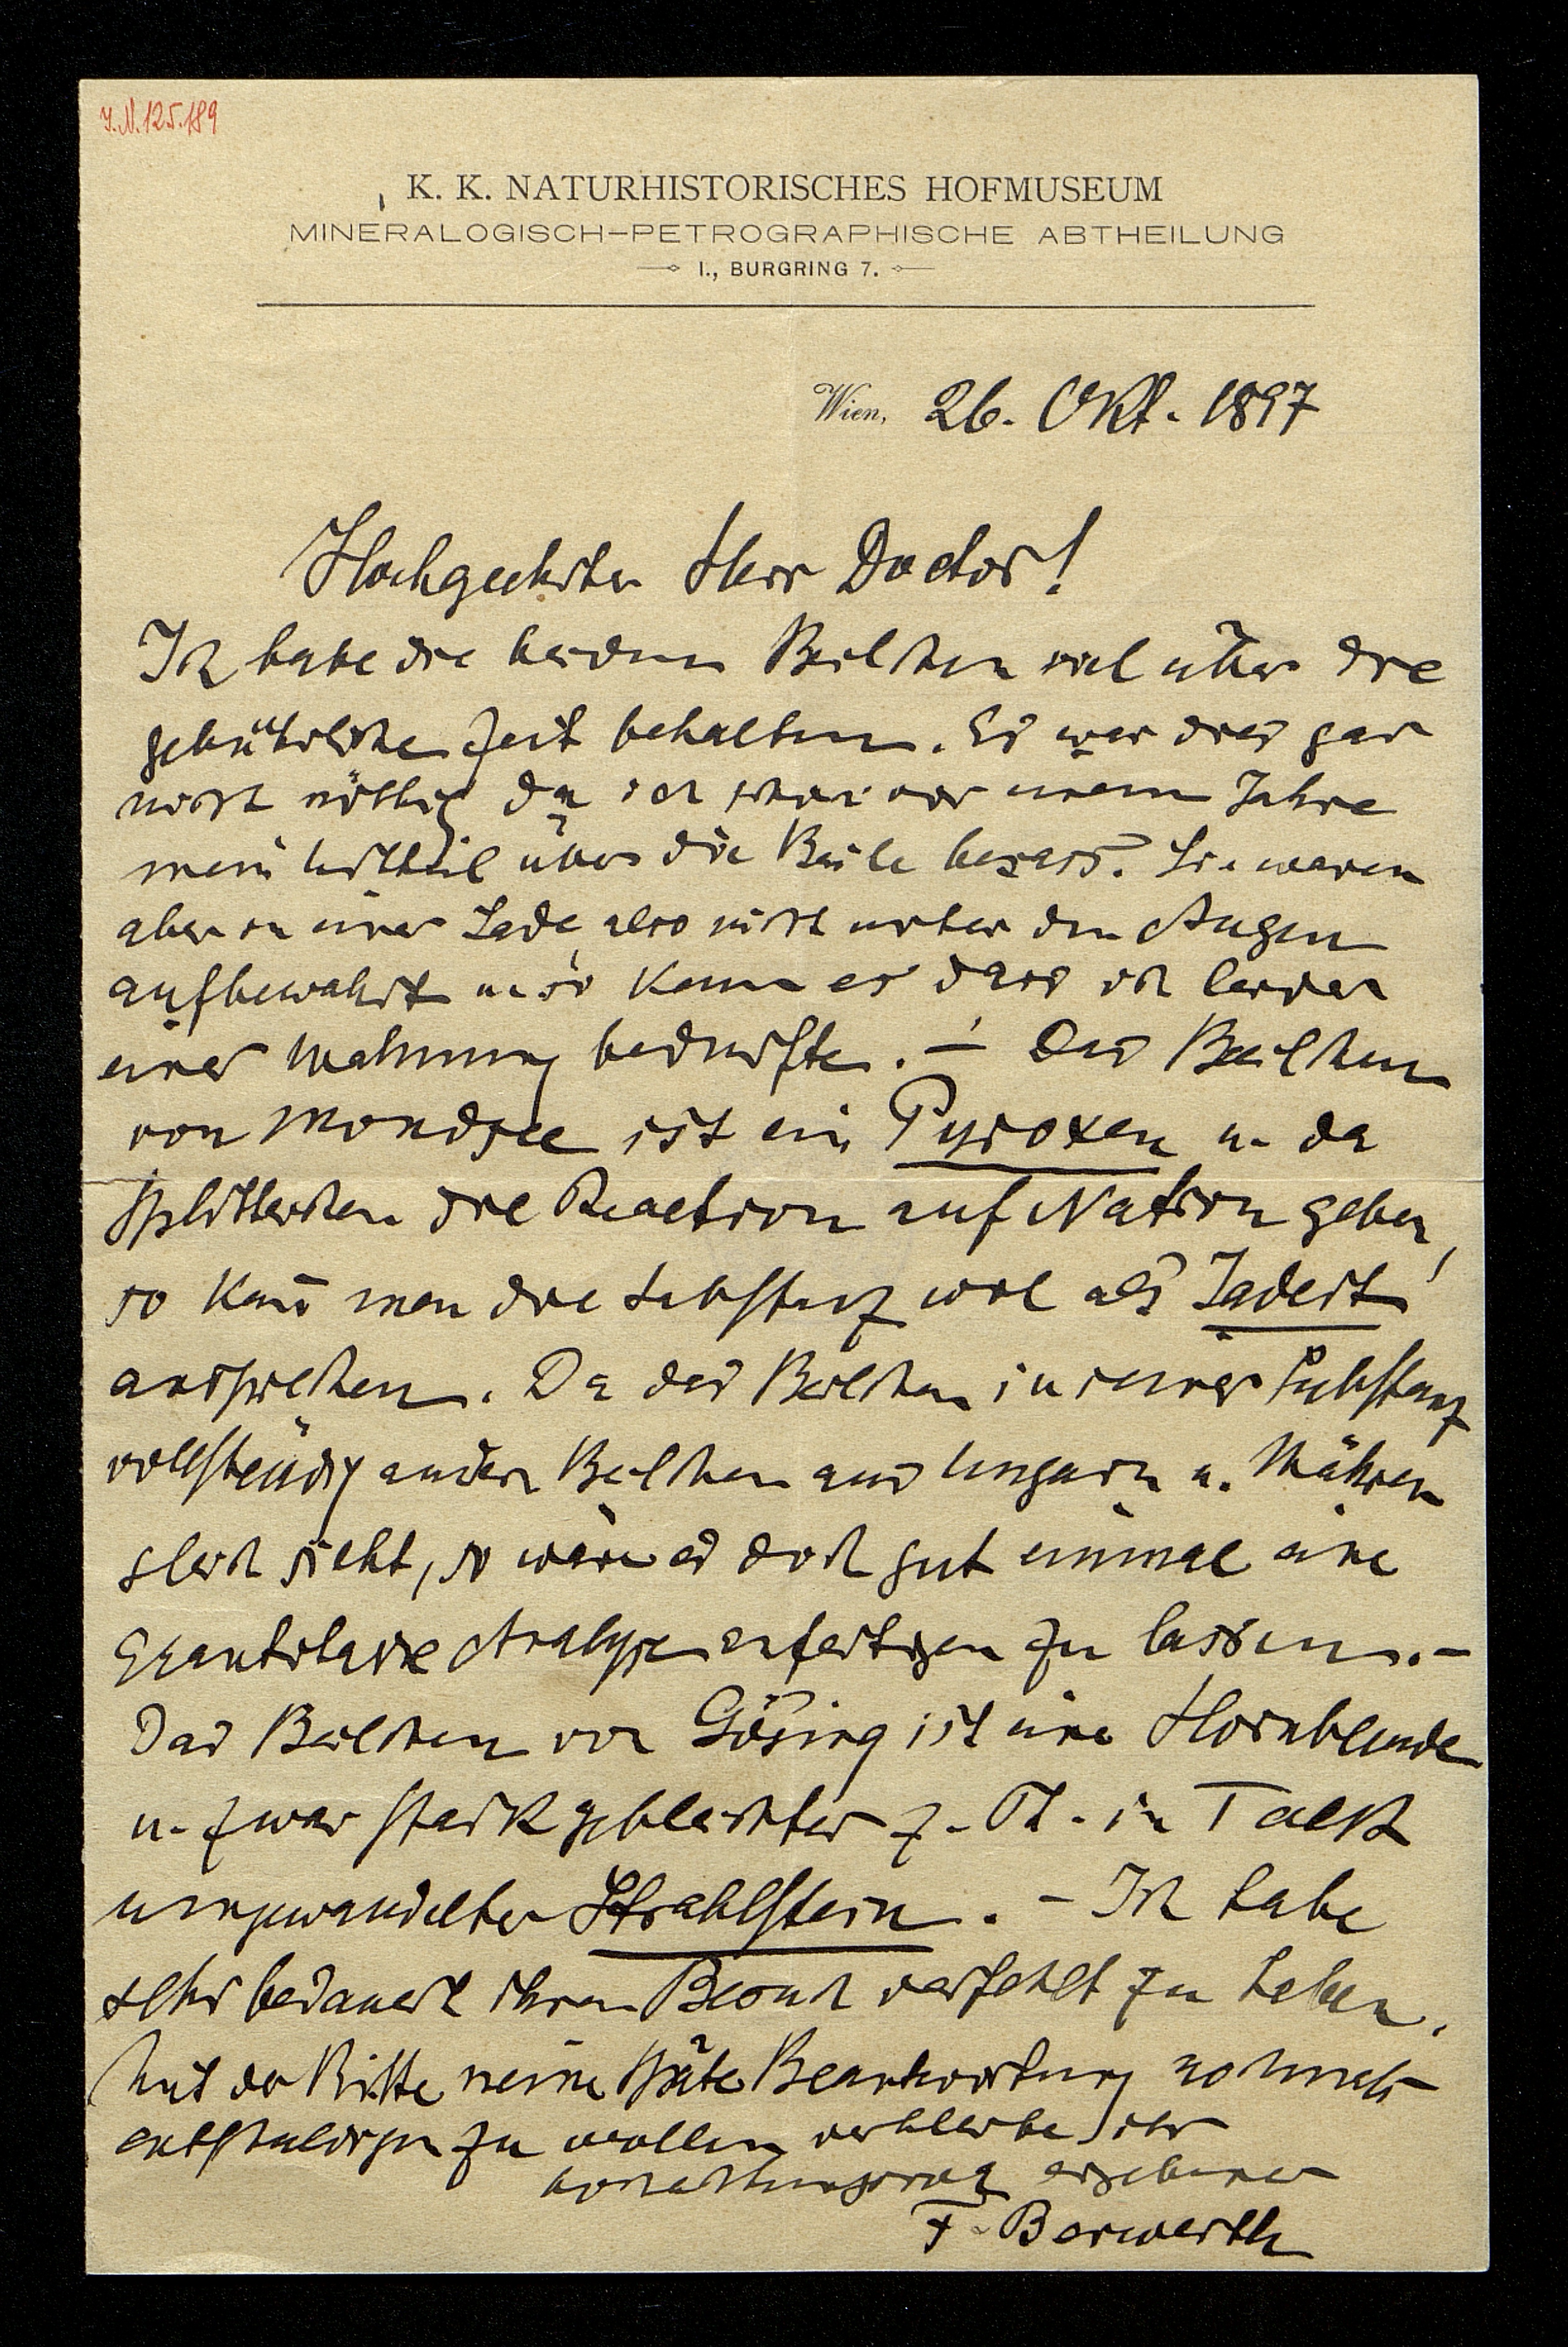 I.N.125.189
K. K. NATURHISTORISCHES HOFMUSEUM
MINERALOGISCH-PETROGRAPHISCHE ABTHEILUNG
I., BURGRING 7.
Wien, 26. Okt. 1897
Hochgeehrter Herr Doctor!
Ich habe die beiden Beilchen viel über die
gebührliche Zeit behalten. Es war dies gar
nicht nöthig da ich schon vor einem Jahre
mein Urtheil über die Beile besass. Sie waren
aber in einer Lade, also nicht unter den Augen
aufbewahrt u. so kam es dass ich leider
einer Mahnung bedurfte. – Das Beilchen
von Mondsee ist ein Pyroxen u. da
Splitterchen die Reaction auf Natron geben,
so kann man die Substanz wol als Jadeit
ansprechen. Da das Beilchen in seiner Substanz
vollständig andern Beilchen aus Ungarn u. Mähren
gleich sieht, so wäre es doch gut einmal eine
quantitative Analyse anfertigen zu lassen. –
Das Beilchen von Gösing ist eine Hornblende
u. zwar stark gebleichter z. Th. in Talk
umgewandelter Strahlstein. – Ich habe
sehr bedauert ihren Besuch verfehlt zu haben.
Mit der Bitte meine späte Beantwortung nochmals
entschuldigen zu wollen verbleibe ich ihr
hochachtungsvoll ergebener
F. Berwerth